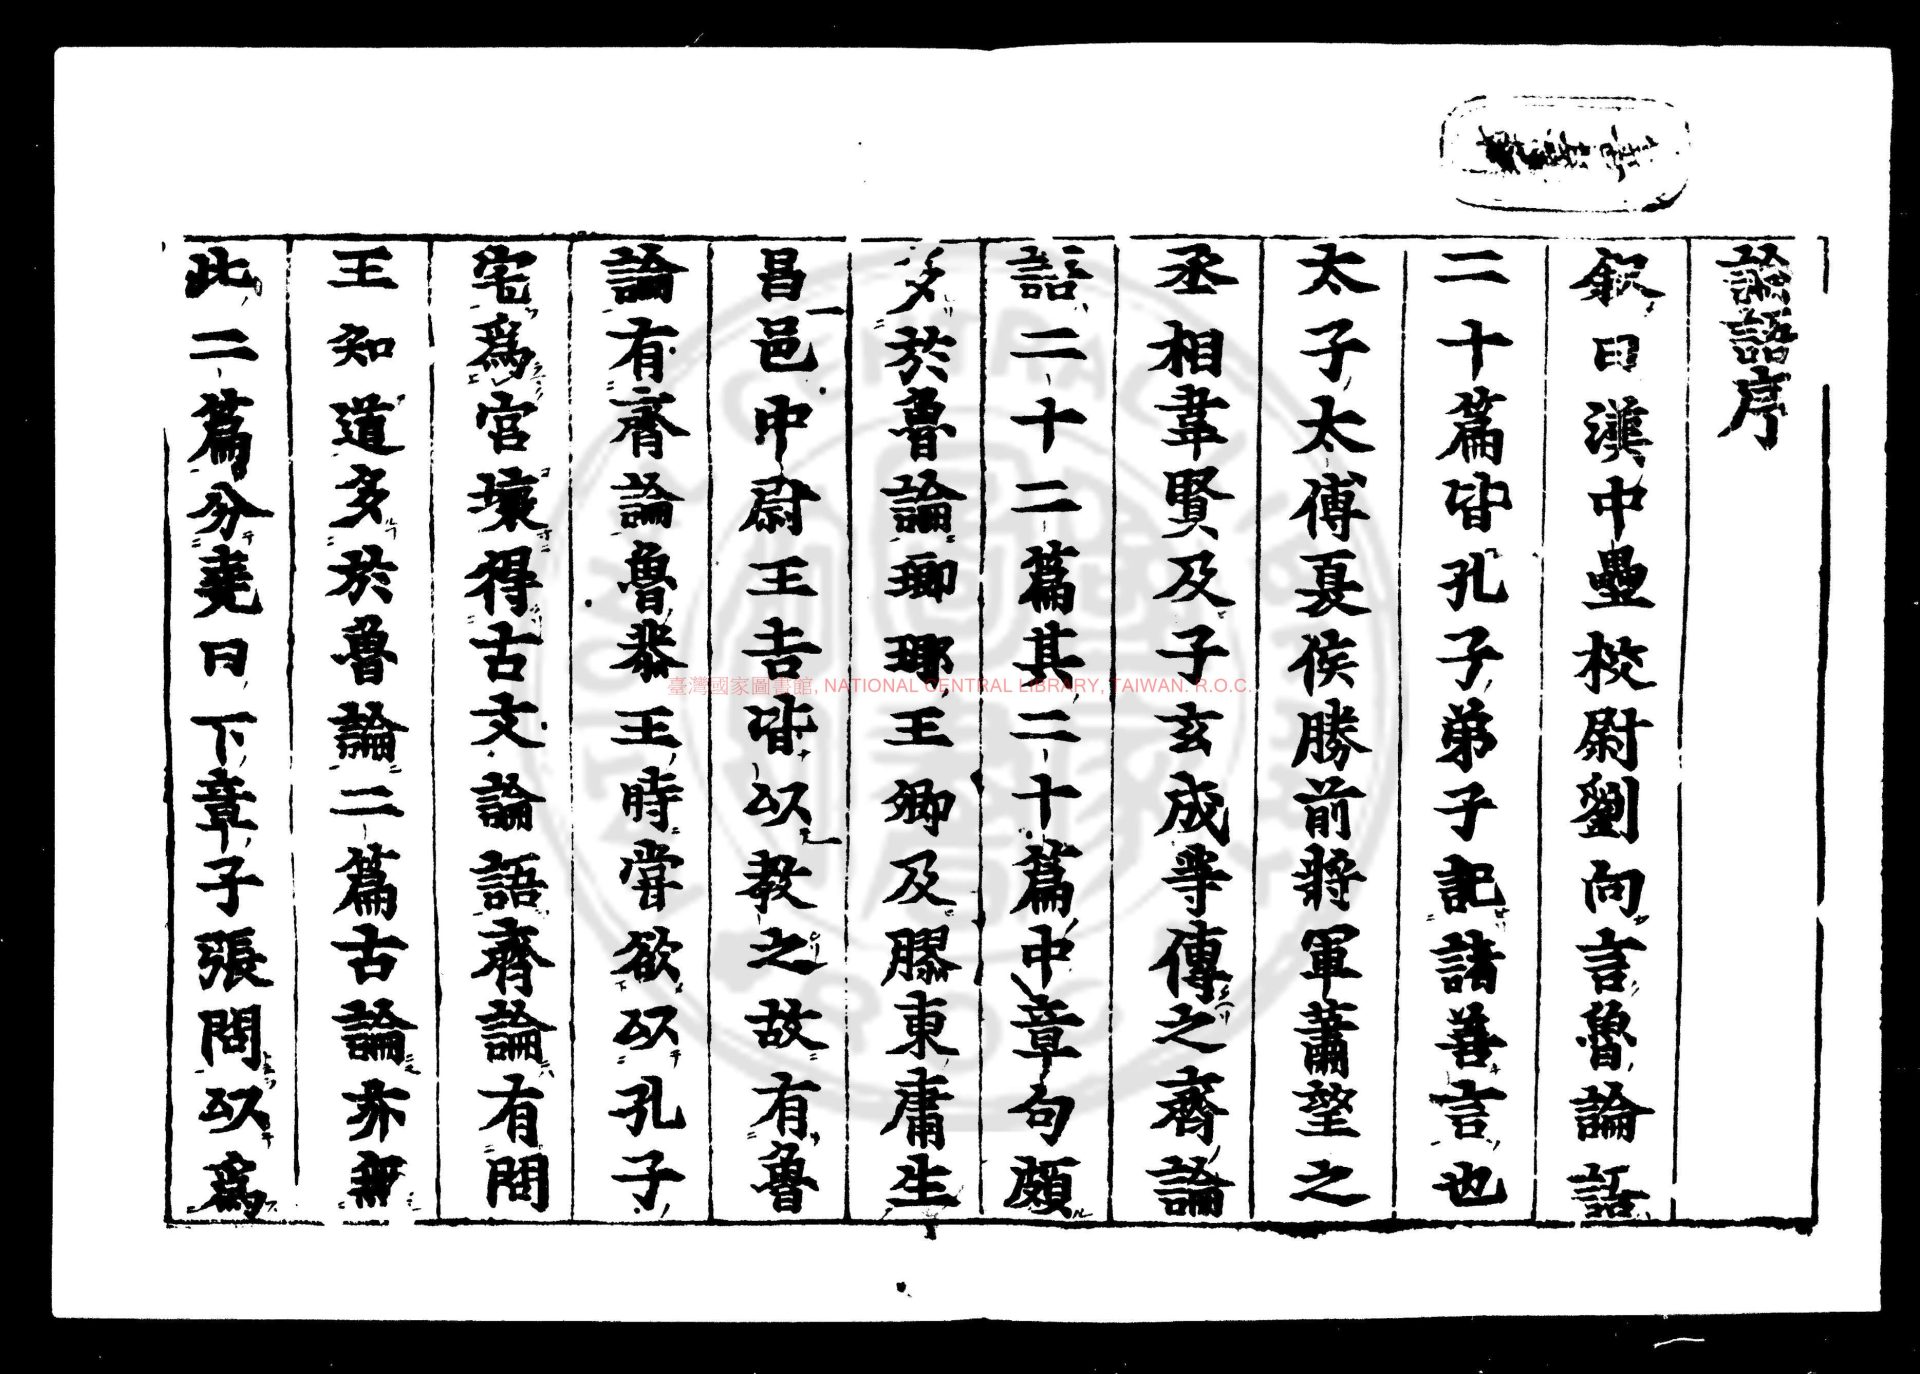 論語序
叙曰漢中壘校尉劉向言魯論語
二十篇皆孔子弟子記諸善言也
太子太傅夏侯勝前將軍蕭望之
丞相韋賢及子玄成等傳之齊論
語二十二篇其二十篇中章句頗
多於魯論瑯琊王卿及膠東庸生
昌邑中尉王吉皆以教之故有魯
論有齊論魯恭王時甞欲以孔子
宅爲宮壞得古文論語齊論有問
王知道多於魯論二篇古論亦無
此二篇分堯曰下章子張問以爲
臺灣國家圖書館, NATIONAL CENTRAL LIBRARY, TAIWAN. R.O.C.